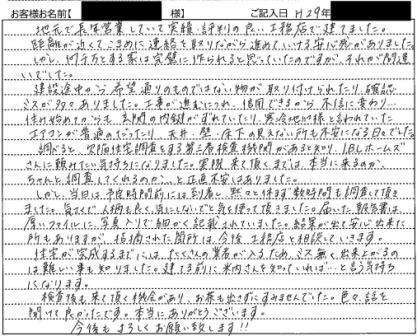 お客様お名前【　　　　　　　様】　ご記入日 H29年
地元で長年営業していて実績・評判の良い工務店で建てました。
距離が近くてこまめに連絡を取りながら進めていける安心感がありました。
しかし、何千万とする家は完璧に作られると思っていたのですが、それが間違
いでした。
建設途中から希望通りのものではない物が取り付けられたり、確認
ミスが多々ありました。工事が進むにつれ、信用できるから不信に変わり…
住み始めてからも玄関の内鍵がずれていたり、寒冷地仕様と言われていた
エアコンが普通のだったり 天井、壁、床下の見えない所も不安になる日々でした。
調べると、欠陥住宅調査をする第三者検査機関があると知り、iBLホームズ
さんに頼みたい気持ちになりました。実際 来て頂くまでは、本当に来るのか、
ちゃんと調査してくれるのか、…と正直不安はありました。
しかし、当日は予定時間前には到着し、黙々と休まず数時間も調査して頂き
ました。気さくで人柄も良く、気にしないでと気を使って頂きました。届いた報告書は
厚いファイルに、写真入りで細かく記載されていました。結果が出て安心出来た
所もありますが、指摘された箇所は今後工務店と相談していきます。
住宅が完成するまでには、たくさんの業者が入るため、ミス無く出来上がるの
は難しい事も知りました。建てる前に米内さんを知っていれば…と言う気持ち
になります。
検査後も来て頂く機会があり、お茶も出さずにすみませんでした。色々、話を
聞けて良かったです。本当にありがとうございます。
今後もよろしくお願い致します!!